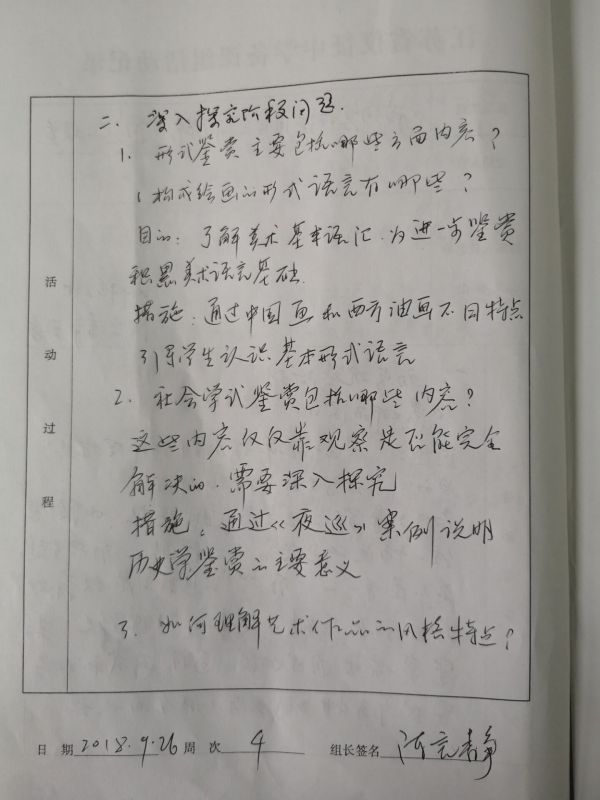 二、深入探究阶段问题.
1. 形式鉴赏主要包括哪些方面内容？
(构成绘画的形式语言有哪些？
目的：了解美术基本语汇，为进一步鉴赏
积累美术语言基础.
措施：通过中国画和西方油画不同特点
引导学生认识基本形式语言
2. 社会学式鉴赏包括哪些内容？
这些内容仅仅靠观察是否能完全
解决的，需要深入探究
措施：通过《夜巡》案例说明
历史学鉴赏的主要意义
3. 如何理解艺术作品的风格特点？
活动过程
日期 2018.9.26 周次 4 组长签名